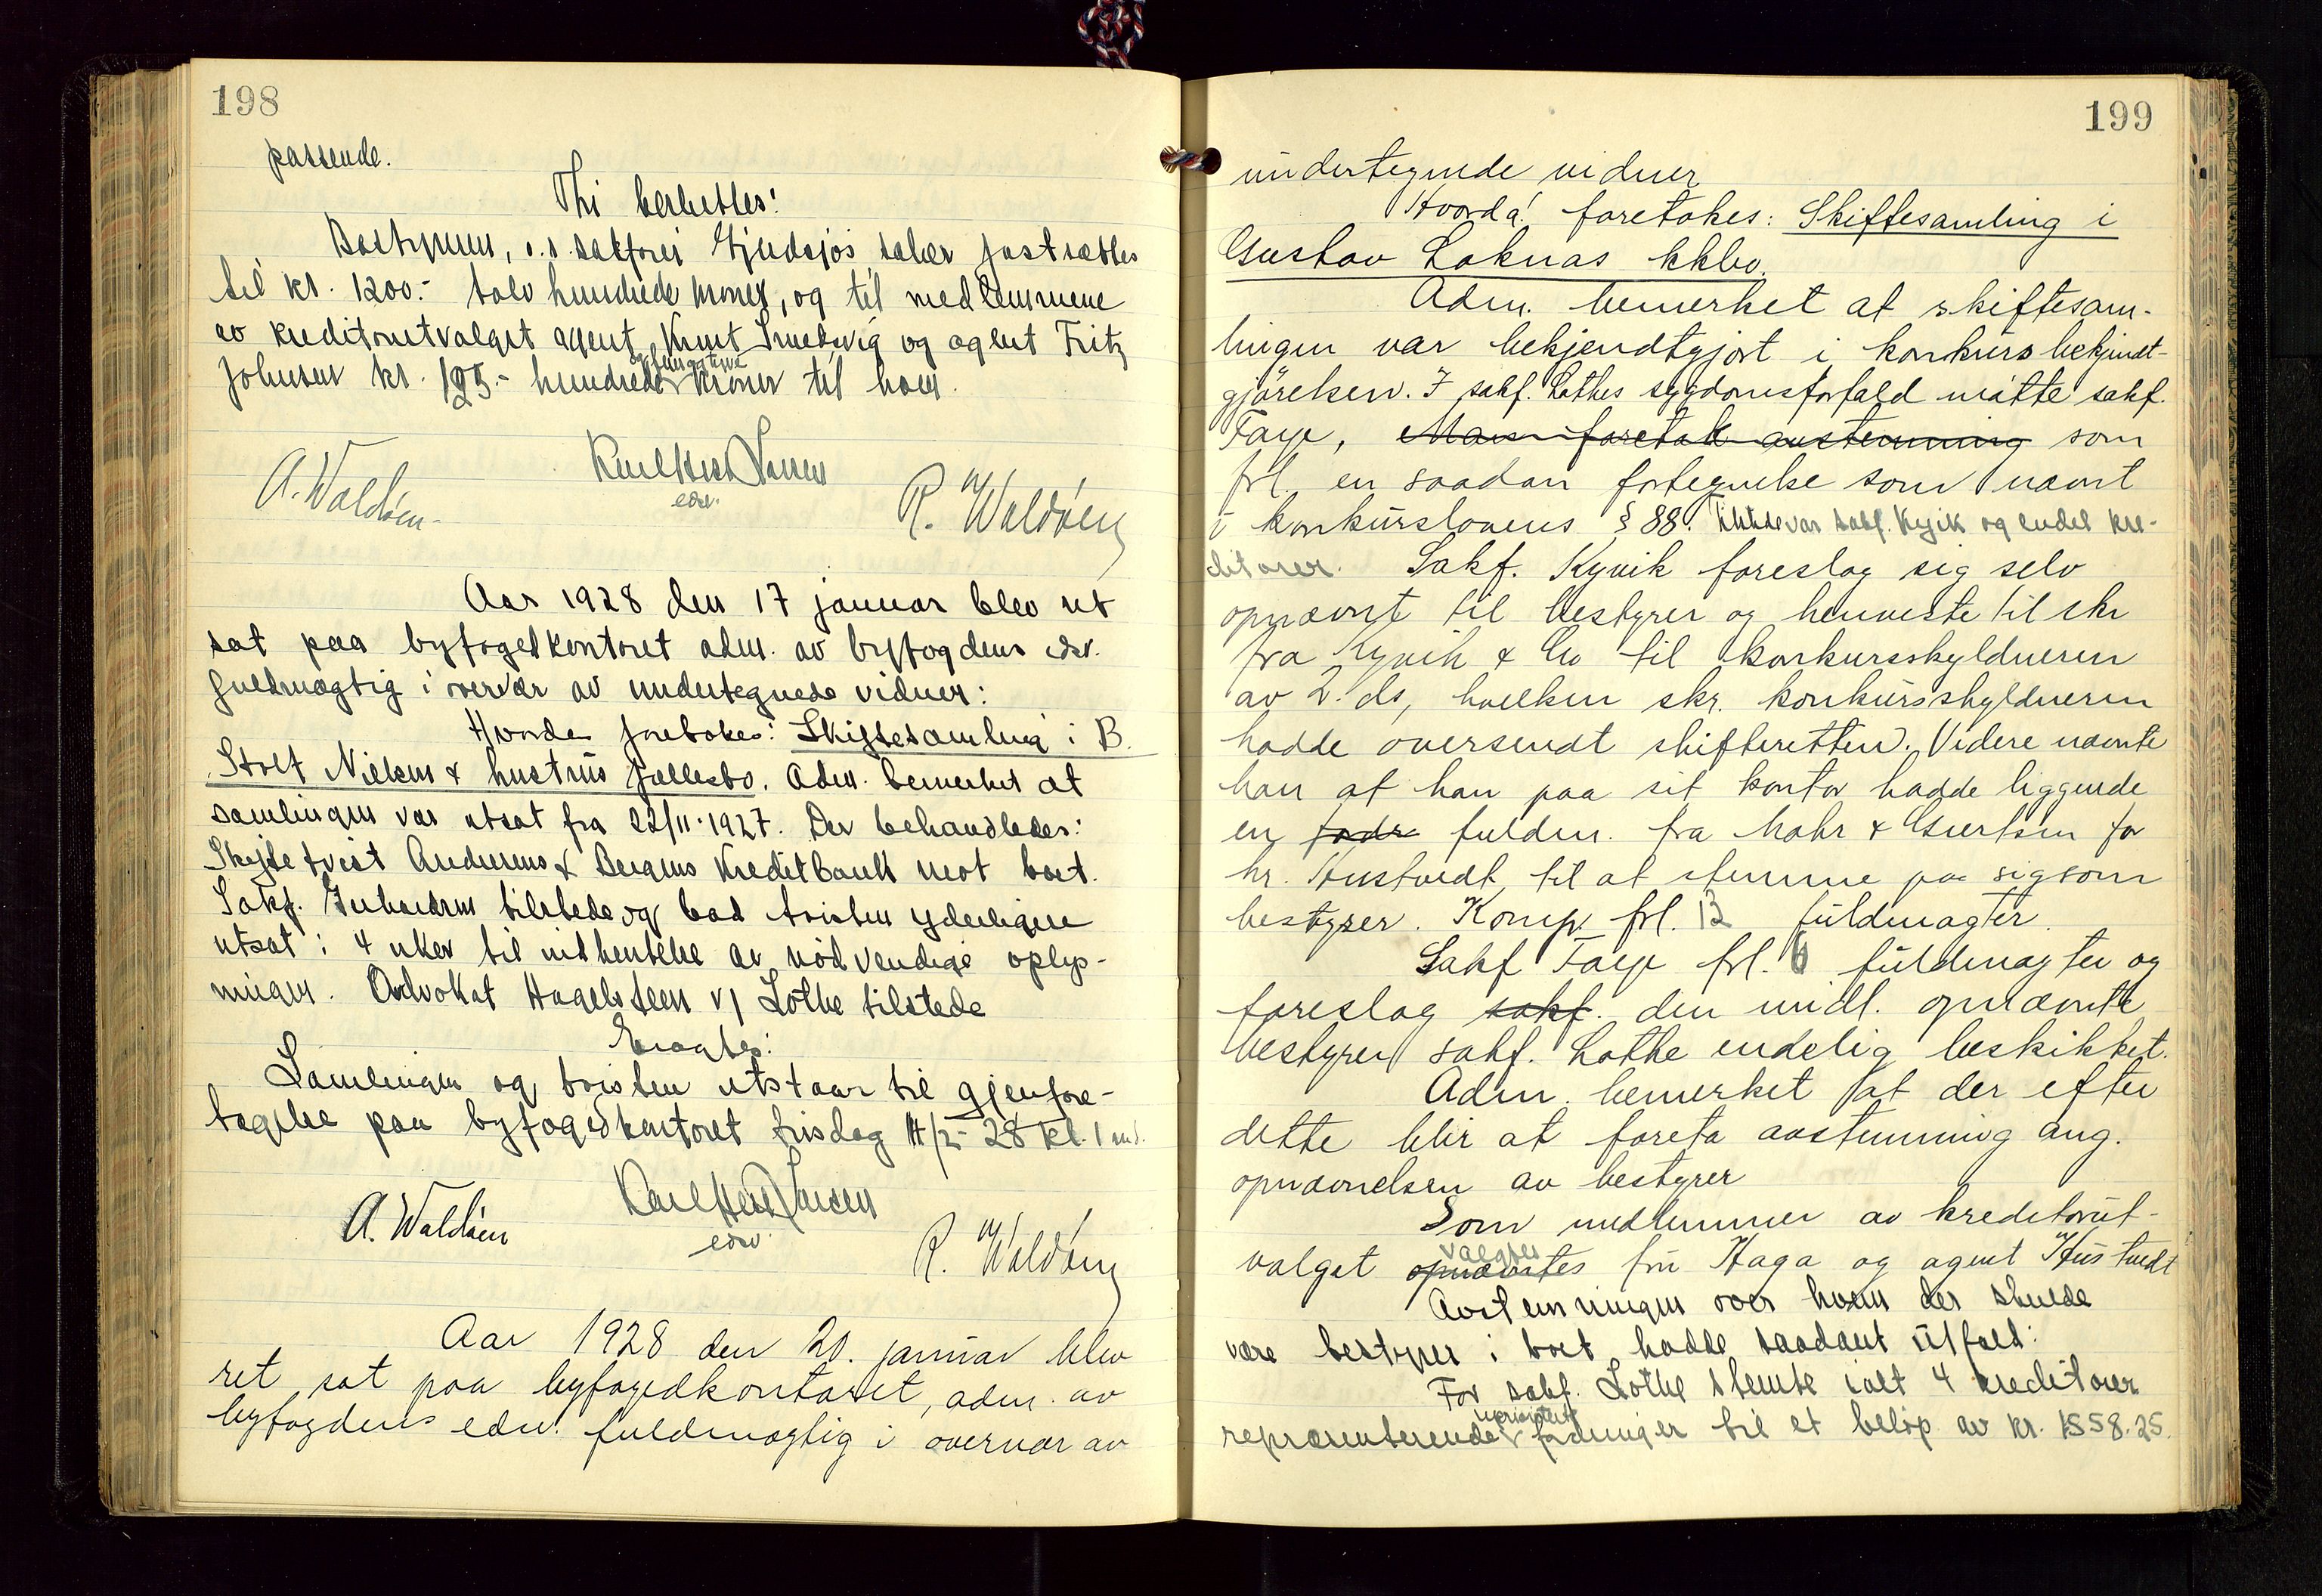 198
passende.
Thi besluttes:
Bestyreren, o.r. sakfører Gjedsjøs salær fastsættes
til kr. 1200.- tolv hundrede kroner, og til medlemmene
av kreditorutvalget agent Knut Smedsvig og agent Fritz
Johnsen kr. 125.- hundrede og femogtyve kroner til hver.
A. Waldöen
edsv.
R. Waldöen
Aar 1928 den 17 januar blev ret
sat paa byfogedkontoret adm. av byfogdens edsv.
fuldmægtig i overvær av undertegnede vidner:
Hvorda foretokes: Skiftesamling i B.
Stolt Nielsen & hustrus fællesbo. Adm. bemerket at
samlingen var utsat fra 22/11-1927. Der behandledes:
Skiftetvist Andersens & Bergens Kreditbank mot boet.
Sakf. tilstede og bad tvisten yderligere
utsat i 4 uker til indhentelse av nödvendige oplys-
ninger. Advokat Hagelsteen v/ Lothe tilstede
Eragtes:
Samlingen og tvisten utstaar til gjenfore-
tagelse paa byfogedkontoret tirsdag 14/2-28 kl. 1 md.
A. Waldöen
edsv.
R. Waldöen
Aar 1928 den 20. januar blev
ret sat paa byfogedkontoret, adm. av
byfogdens edsv. fuldmægtig i overvær av
199
undertegnede vidner
Hvorda! foretokes: Skiftesamling i
Gustav Loknas kkbo.
Adm. bemerket at skiftesam-
lingen var bekjendtgjort i konkursbekjendt-
gjörelsen. I sakf. Lothes sygdomsforfald mötte sakf.
Faye, Man foretok avstemning som
frl. en saadan fortegnelse som nævnt
i konkurslovens § 88. Tilstede var sakf. Kyvik og endel kre-
ditorer. Sakf. Kyvik foreslog sig selv
opnævnt til bestyrer og henviste til skr
fra Kyvik & Co til konkursskyldneren
av 2. ds, hvilken skr. konkursskyldneren
hadde oversendt skifteretten. Videre nævnte
han at han paa sit kontor hadde liggende
en fodr fuldm. fra Mohr & Giertsen for
hr. Hustvedt til at stemme paa sig som
bestyrer. Komp. frl. 13 fuldmagter.
Sakf Faye frl. 6 fuldmagter og
foreslog sakf. den midl. opnævnte
bestyrer sakf. Lothe endelig beskikket.
Adm. bemerket at der efter
dette blir at foreta avstemning ang.
opnævnelsen av bestyrer
Som medlemmer av kreditorut-
valget opnævntes valgtes fru Haga og agent Hustvedt
Avstemningen over hvem der skulde
være bestyrer i boet hadde saadant utfald:
For sakf. Lothe stemte ialt 4 kreditorer
repræsenterende upriviligerte fordringer til et belöp av kr. 1558.25.